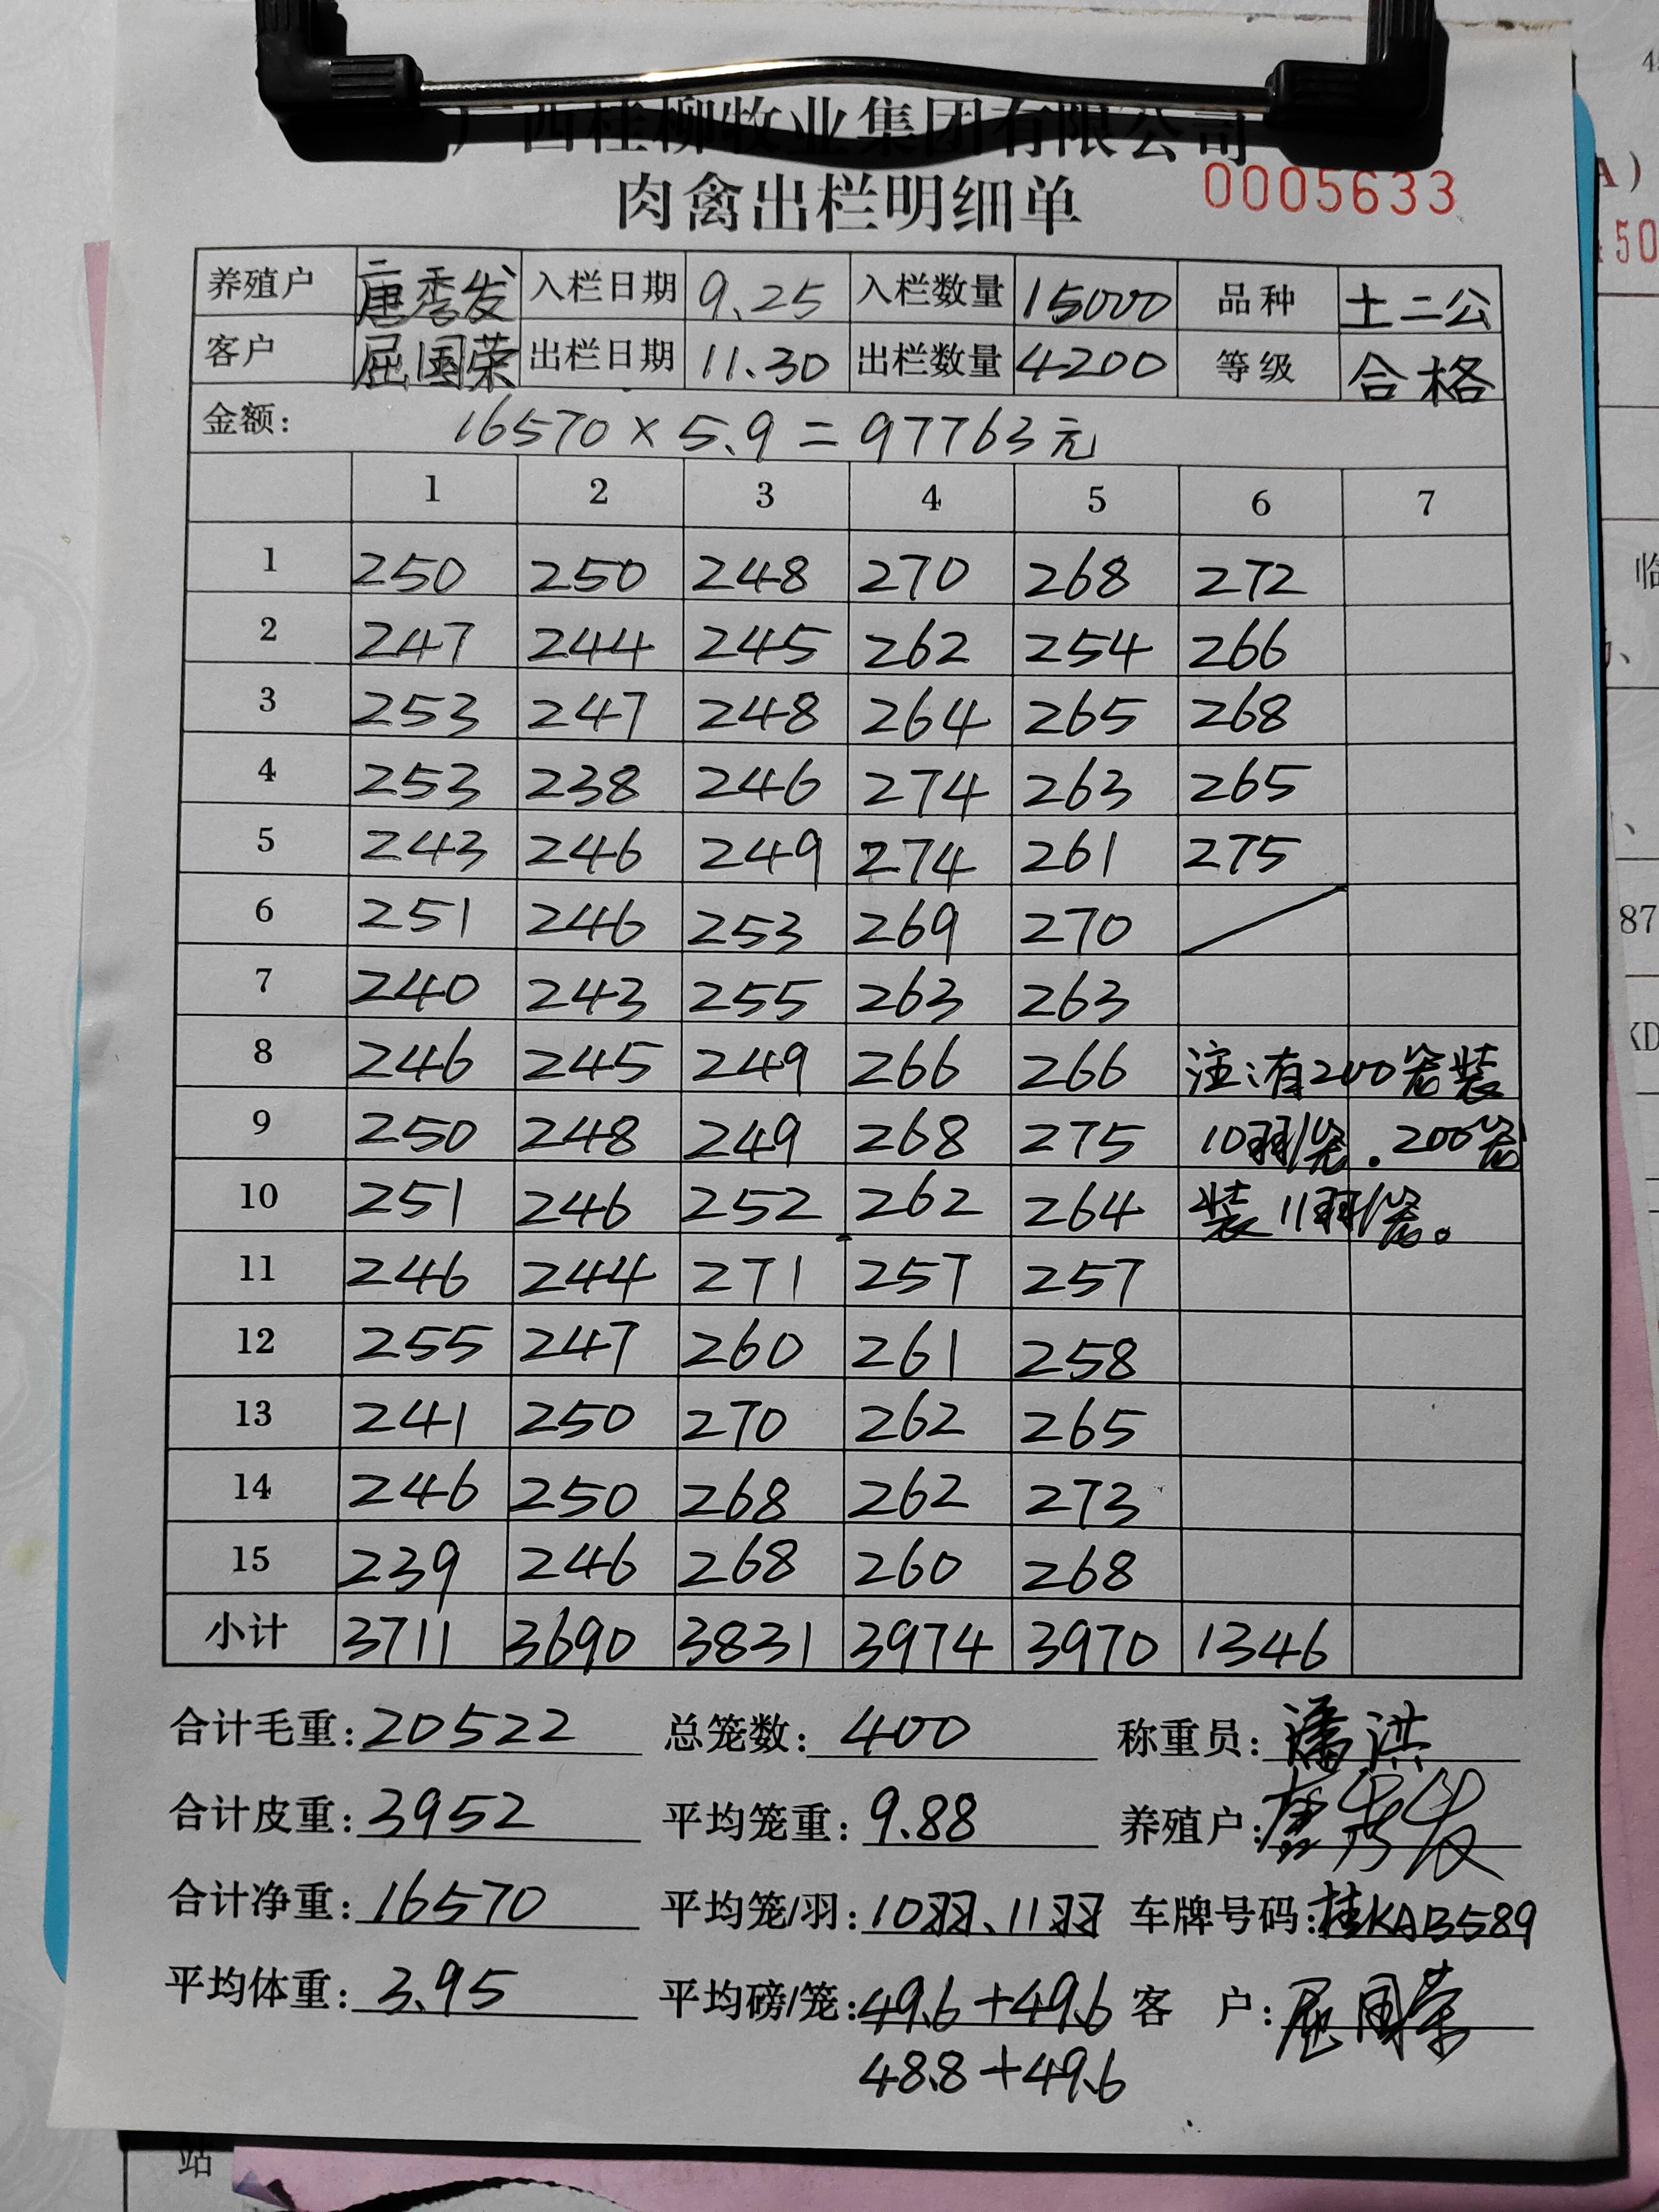 广西桂柳牧业集团有限公司
肉禽出栏明细单 0005633
养殖户 唐秀发 入栏日期 9.25 入栏数量 15000 品种 土二公
客户 屈国荣 出栏日期 11.30 出栏数量 4200 等级 合格
金额: 16570×5.9=97763元
1 2 3 4 5 6 7
1 250 250 248 270 268 272
2 247 244 245 262 254 266
3 253 247 248 264 265 268
4 253 238 246 274 263 265
5 243 246 249 274 261 275
6 251 246 253 269 270
7 240 243 255 263 263
8 246 245 249 266 266 注:有200笼装
9 250 248 249 268 275 10羽/笼.200笼
10 251 246 252 262 264 装11羽/笼。
11 246 244 271 257 257
12 255 247 260 261 258
13 241 250 270 262 265
14 246 250 268 262 273
15 239 246 268 260 268
小计 3711 3690 3831 3974 3970 1346
合计毛重:20522 总笼数:400 称重员:潘洪
合计皮重:3952 平均笼重:9.88 养殖户:唐秀发
合计净重:16570 平均笼/羽:10羽、11羽 车牌号码:桂KAB589
平均体重:3.95 平均磅/笼:49.6+49.6 客 户:屈国荣
48.8+49.6
站
87